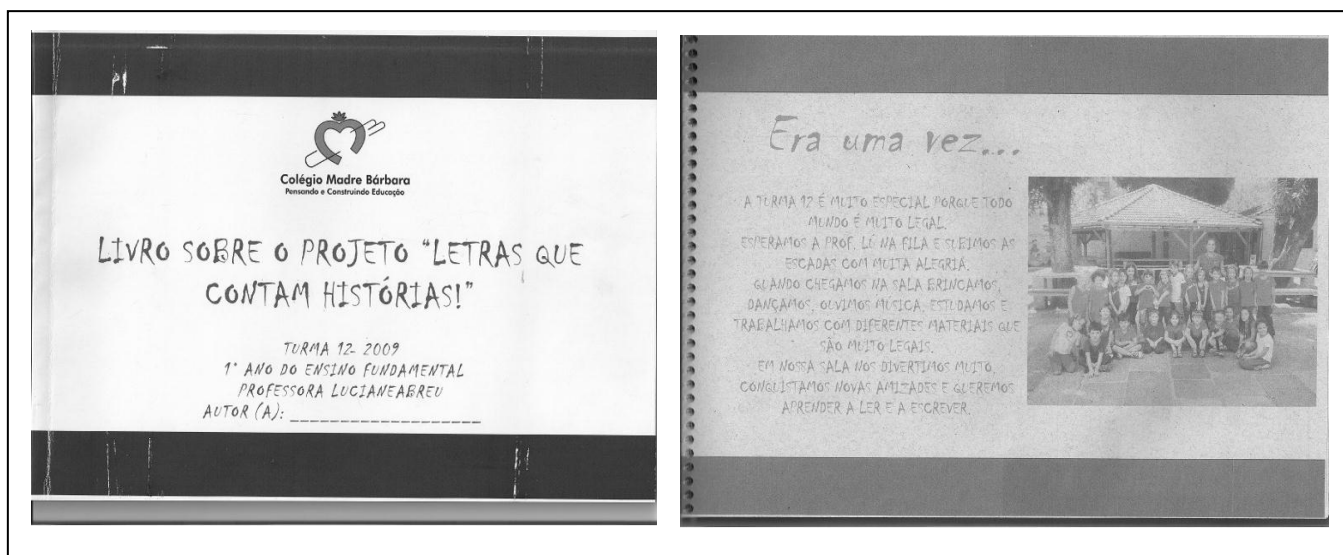 Colégio Madre Bárbara
Pensando e Construindo Educação
LIVRO SOBRE O PROJETO "LETRAS QUE
CONTAM HISTÓRIAS!"
TURMA 12- 2009
1° ANO DO ENSINO FUNDAMENTAL
PROFESSORA LUCIANEABREU
AUTOR (A): ____________________
Era uma vez...
A TURMA 12 É MUITO ESPECIAL PORQUE TODO
MUNDO É MUITO LEGAL.
ESPERAMOS A PROF. LÚ NA FILA E SUBIMOS AS
ESCADAS COM MUITA ALEGRIA.
QUANDO CHEGAMOS NA SALA BRINCAMOS,
DANÇAMOS, OUVIMOS MÚSICA, ESTUDAMOS E
TRABALHAMOS COM DIFERENTES MATERIAIS QUE
SÃO MUITO LEGAIS.
EM NOSSA SALA NOS DIVERTIMOS MUITO,
CONQUISTAMOS NOVAS AMIZADES E QUEREMOS
APRENDER A LER E A ESCREVER.